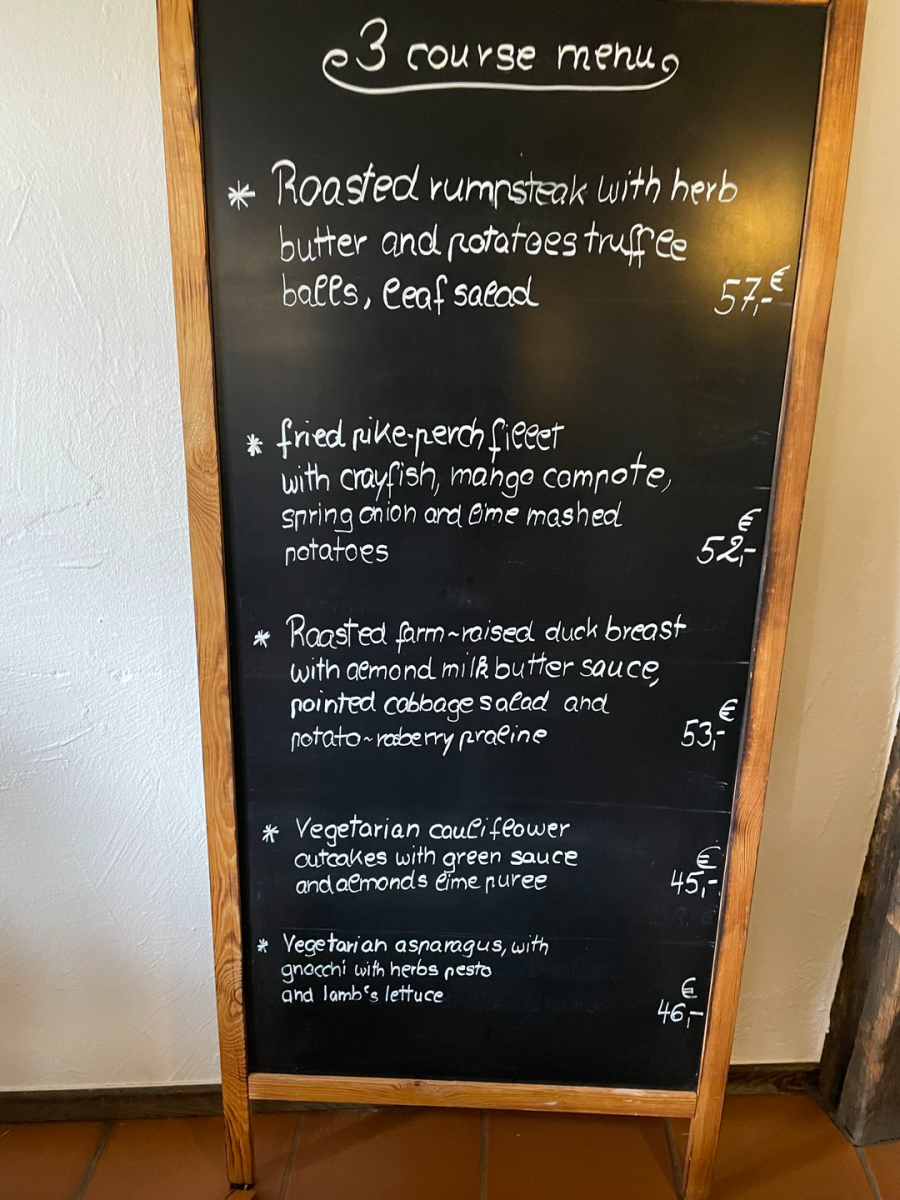 3 course menu
* Roasted rumpsteak with herb
butter and potatoes truffle
balls, leaf salad
57,- €
* fried pike-perch fillet
with crayfish, mango compote,
spring onion and lime mashed
potatoes
52,- €
* Roasted farm~raised duck breast
with almond milk butter sauce,
pointed cabbage salad and
potato~rosberry praline
53,- €
* Vegetarian cauliflower
outcakes with green sauce
and almonds lime puree
45,- €
* Vegetarian asparagus, with
gnocchi with herbs pesto
and lamb's lettuce
46,- €